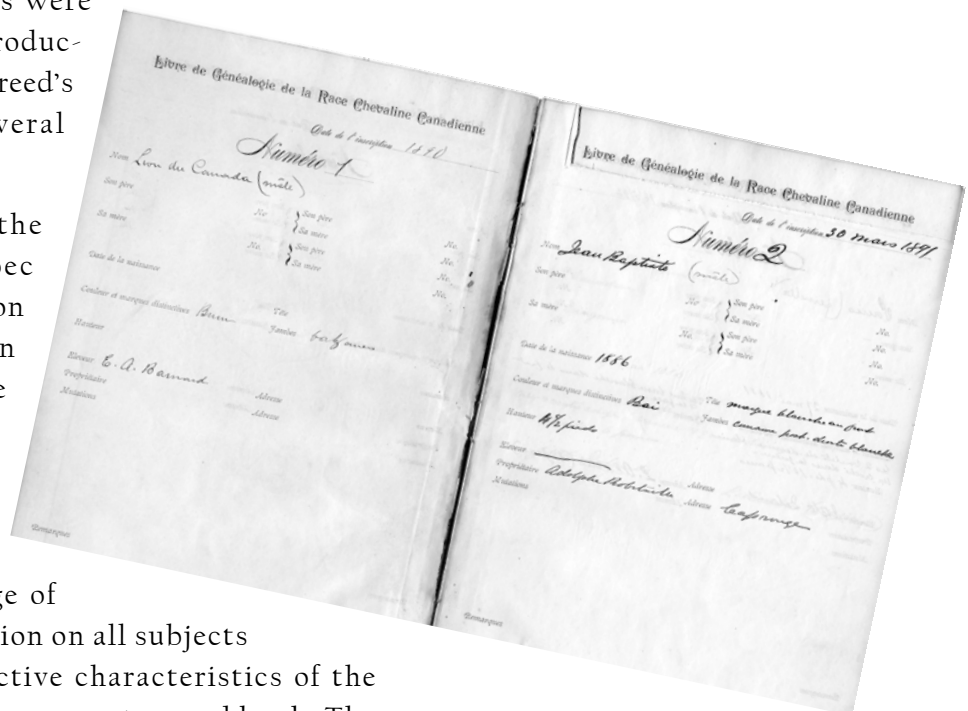 s were
roduc-
reed's
veral
the
bec
on
n
e
ge of
ion on all subjects
ctive characteristics of the
Livre de Généalogie de la Race Chevaline Canadienne
Date de l'inscription 1890
Numéro 1
Nom Lion du Canada (mâle)
Son père
No. Son père No.
Sa mère No.
Sa mère
No. Son père No.
Sa mère No.
Date de la naissance
Couleur et marques distinctives Brun Tête
Jambes
Hauteur
Éleveur E. A. Barnard Adresse
Propriétaire Adresse
Mutations
Remarques
Livre de Généalogie de la Race Chevaline Canadienne
Date de l'inscription 30 mars 1891
Numéro 2
Nom Jean Baptiste (mâle)
Son père
No. Son père No.
Sa mère No.
Sa mère
No. Son père No.
Sa mère No.
Date de la naissance 1886
Couleur et marques distinctives Bai Tête marque blanche au front
Jambes
Hauteur
Éleveur Adresse
Propriétaire Adolphe Adresse
Mutations
Remarques